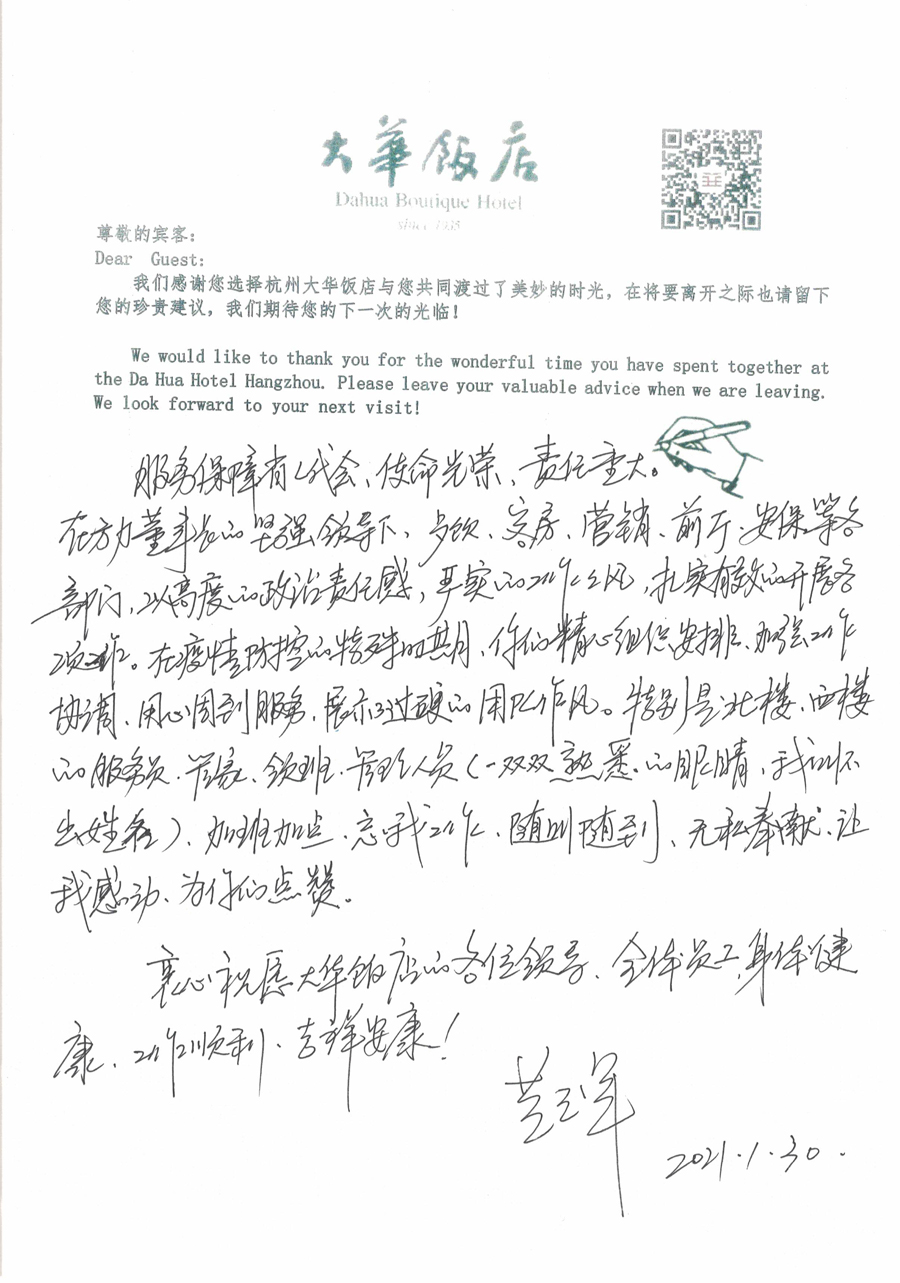 大華飯店
Dahua Boutique Hotel
since 1935
尊敬的宾客：
Dear Guest:
我们感谢您选择杭州大华饭店与您共同渡过了美妙的时光，在将要离开之际也请留下
您的珍贵建议，我们期待您的下一次的光临！
We would like to thank you for the wonderful time you have spent together at
the Da Hua Hotel Hangzhou. Please leave your valuable advice when we are leaving.
We look forward to your next visit!
服务保障省两会、使命光荣、责任重大。
在方力董事长的坚强领导下、餐饮、客房、营销、前厅、安保等各
部门，以高度的政治责任感，严实的工作作风，扎实有效的开展各
项工作。在疫情防控的特殊时期、你们精心组织安排、加强工作
协调、用心周到服务、展示了过硬的团队作风。特别是北楼、西楼
的服务员、管家、领班、管理人员（一双双熟悉的眼睛，我叫不
出姓名）、加班加点、忘我工作、随叫随到、无私奉献、让
我感动、为你们点赞。
衷心祝愿大华饭店的各位领导、全体员工、身体健
康、工作顺利、吉祥安康！
2021.1.30.